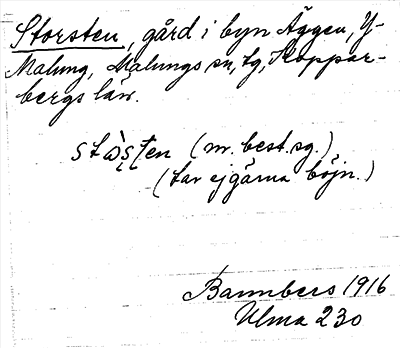 Storsten, gård i byn Äggen, Y-
Malung, Malungs sn, tg, Koppar-
bergs län.
stɔ̀ṣṭen (m. best. sg.)
(tar ej gärna böjn.)
Bannbers 1916
Ulma 230